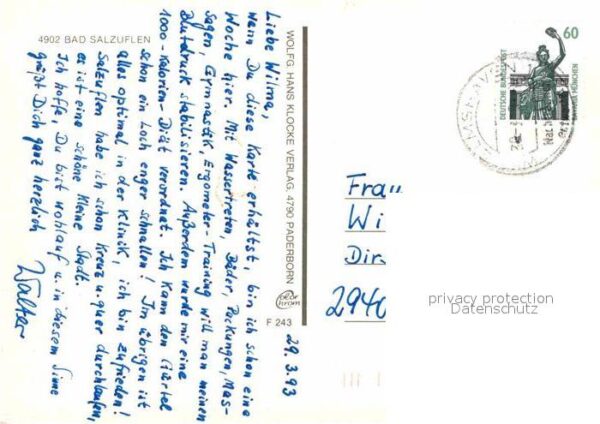 4902 BAD SALZUFLEN
29.3.93
Liebe Wilma,
Wenn Du diese Karte erhältst, bin ich schon eine
Woche hier. Mit Wassertreten, Bäder, Packungen, Mas-
sagen, Gymnastik, Ergometer-Training will man meinen
Blutdruck stabilisieren. Außerdem wurde mir eine
1000-Kalorien-Diät verordnet. Ich kann den Gürtel
schon ein Loch enger schnallen! Im übrigen ist
alles optimal in der Klinik, ich bin zufrieden!
Salzuflen habe ich schon kreuz u. quer durchlaufen,
es ist eine schöne kleine Stadt.
Ich hoffe, Du bist wohlauf u. in diesem Sinne
grüßt Dich ganz herzlich
Walter
WOLFG. HANS KLOCKE VERLAG, 4790 PADERBORN
F 243
60
DEUTSCHE BUNDESPOST
BAVARIA MÜNCHEN
Frau
Wi
Dir
2940
privacy protection
Datenschutz